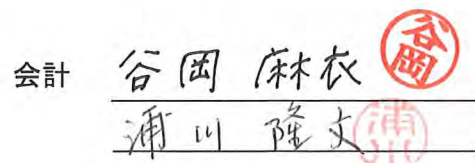 会計 谷岡 麻衣 谷岡
浦川 隆文 浦川